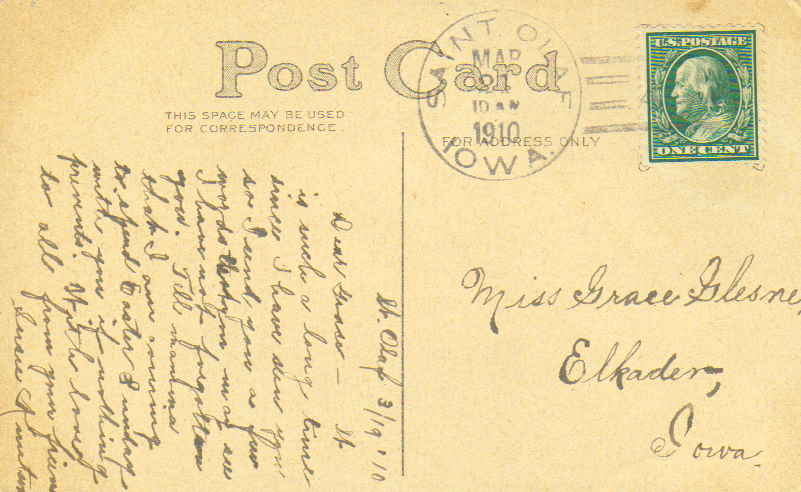 Post Card
THIS SPACE MAY BE USED
FOR CORRESPONDENCE.
FOR ADDRESS ONLY
SAINT OLAF
MAR
10 AM
1910
IOWA.
U.S. POSTAGE
ONE CENT
St. Olaf 3/19 '10
Dear Grace — It
is such a long time
since I have seen you
so I send you a few
words that you may see
I have not forgotten
you. Tell mamma
that I am coming
to spend Easter Sunday
with you if nothing
prevents. With love
to all from your friend
Susie
Miss Grace Glesne,
Elkader,
Iowa.